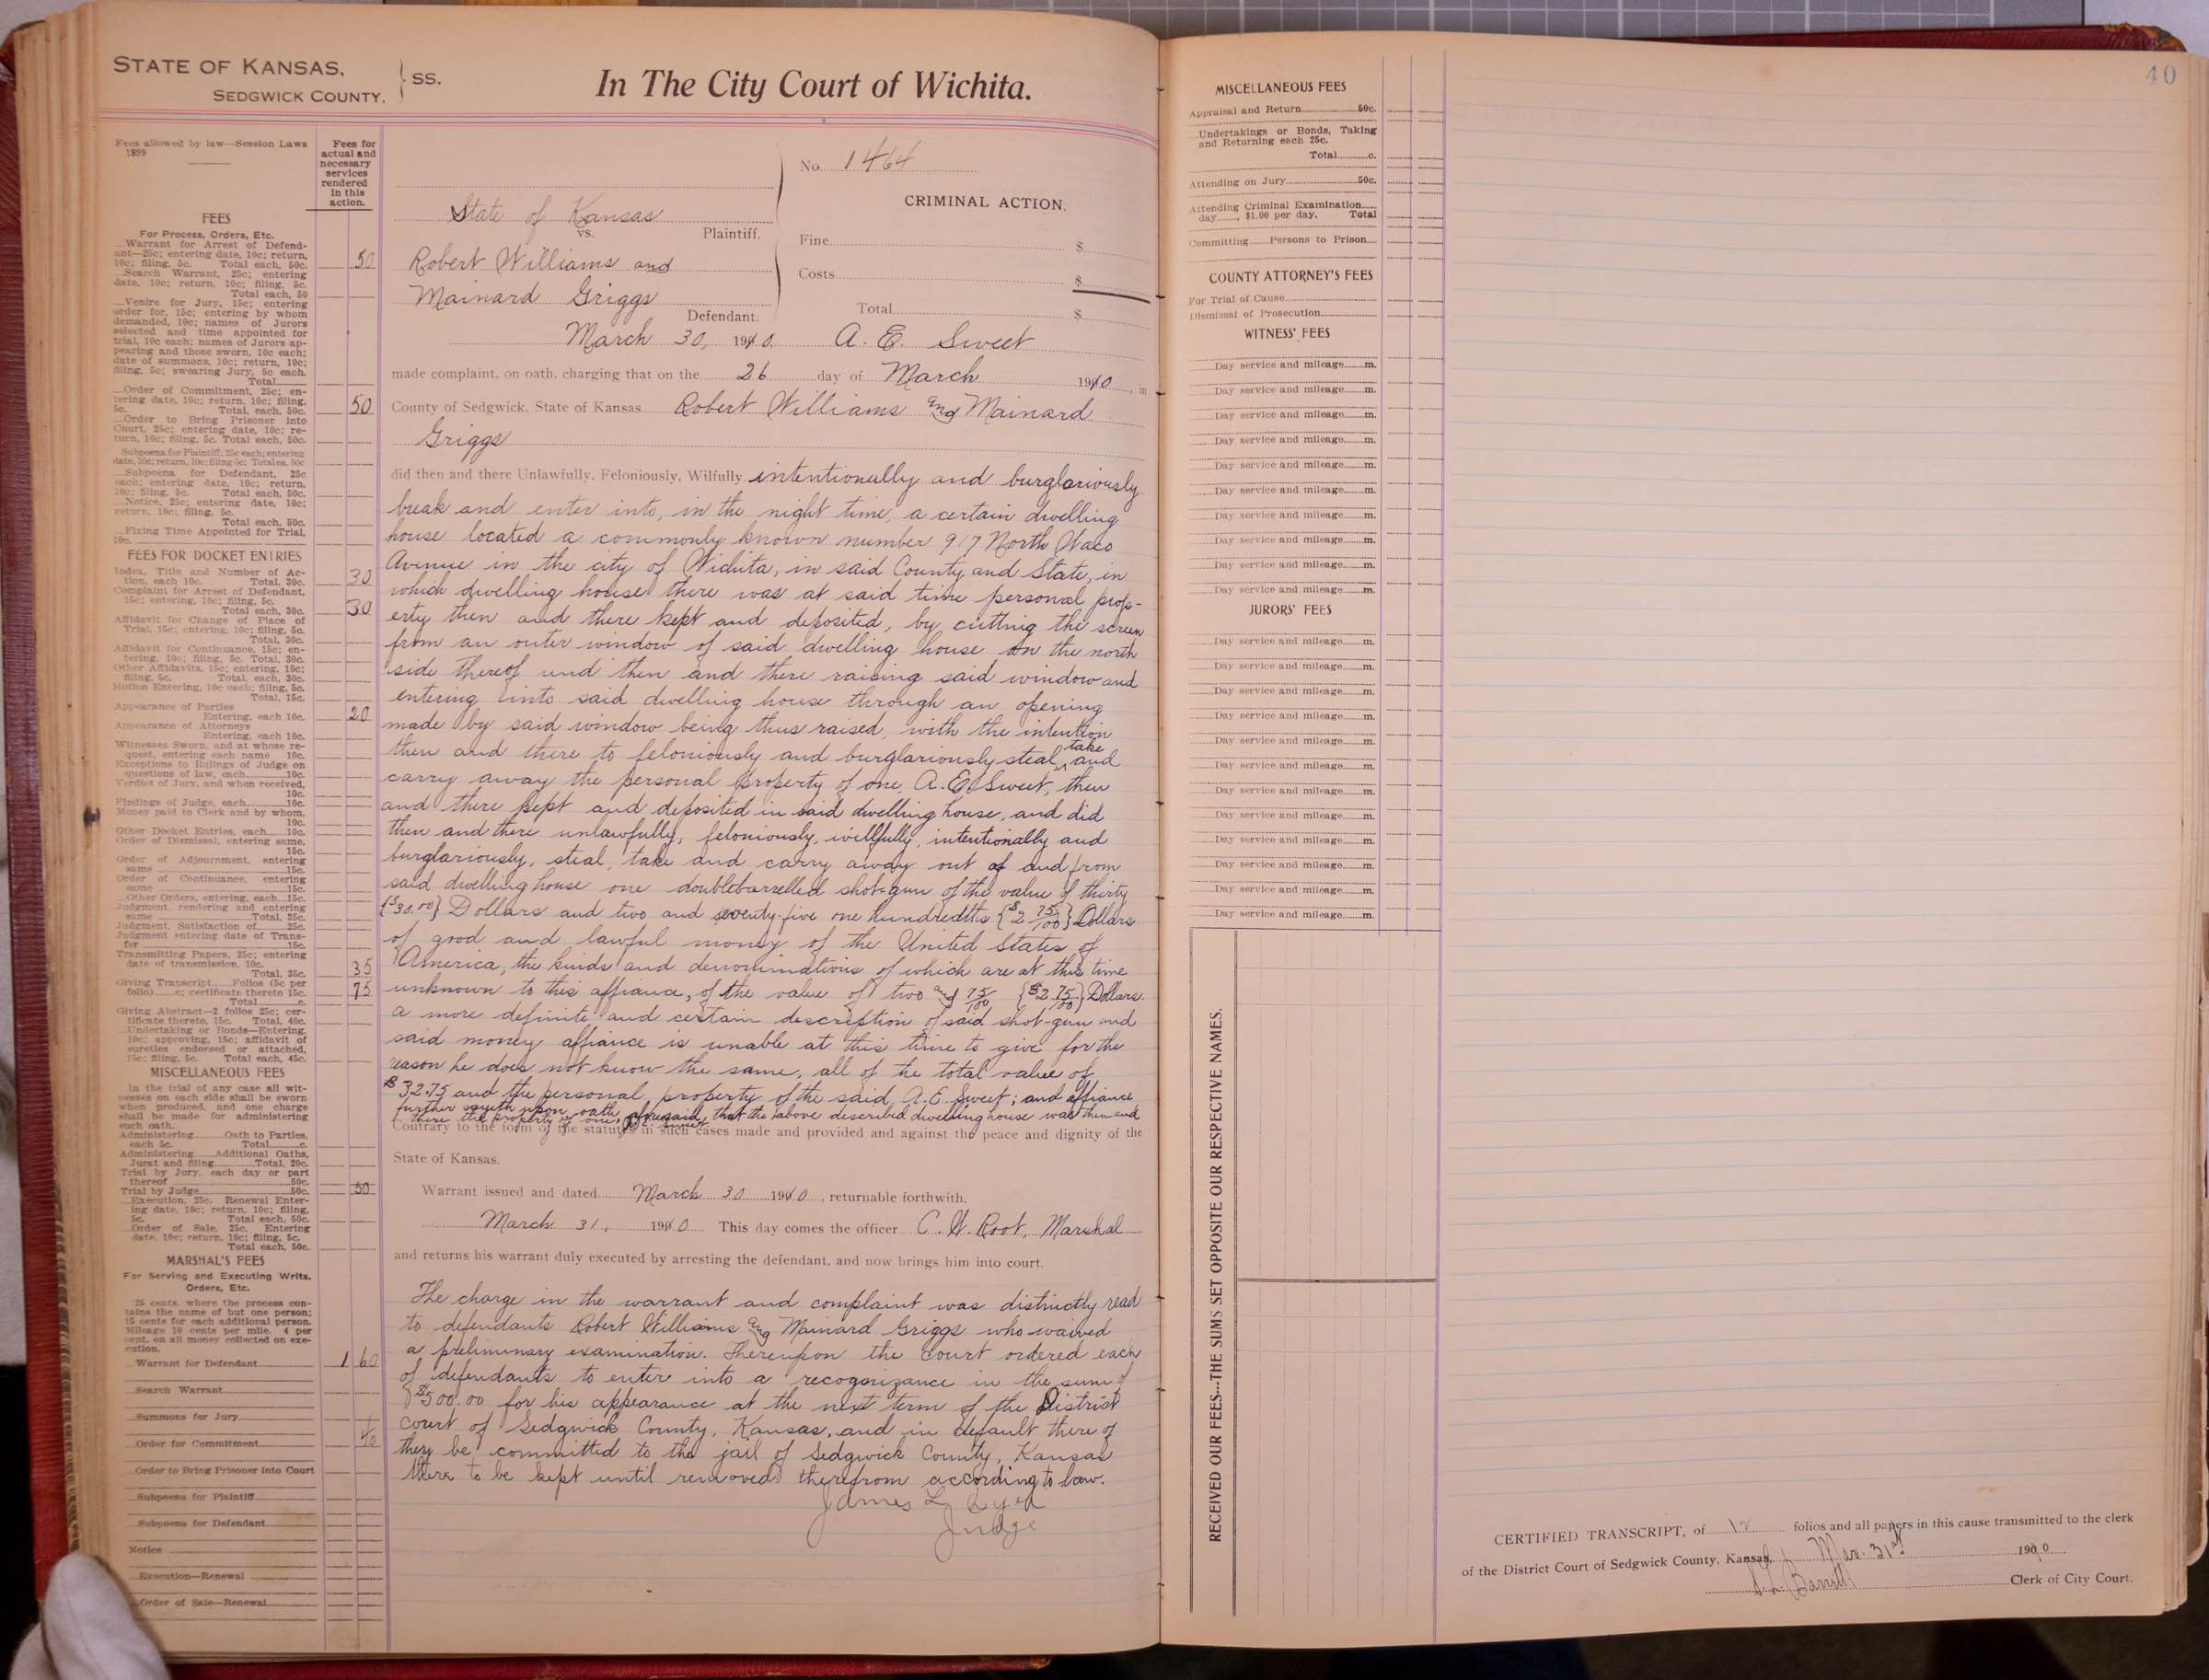 STATE OF KANSAS,
SEDGWICK COUNTY,
SS.
In The City Court of Wichita.
Fees allowed by law—Session Laws
1899
Fees for
actual and
necessary
services
rendered
in this
action.
FEES
For Process, Orders, Etc.
Warrant for Arrest of Defend-
ant—25c; entering date, 10c; return,
10c; filing, 5c. Total each, 50c. 50
Search Warrant, 25c; entering
date, 10c; return, 10c; filing, 5c.
Total each, 50
Venire for Jury, 15c; entering
order for, 15c; entering by whom
demanded, 10c; names of Jurors
selected and time appointed for
trial, 10c each; names of Jurors ap-
pearing and those sworn, 10c each;
date of summons, 10c; return, 10c;
filing, 5c; swearing Jury, 5c each.
Total
Order of Commitment, 25c; en-
tering date, 10c; return, 10c; filing,
5c. Total, each, 50c. 50
Order to Bring Prisoner into
Court, 25c; entering date, 10c; re-
turn, 10c; filing, 5c. Total each, 50c.
Subpoena for Plaintiff, 25c each; entering
date, 10c; return, 10c; filing 5c; Total ea. 50c
Subpoena for Defendant, 25c
each; entering date, 10c; return,
10c; filing, 5c. Total each, 50c.
Notice, 25c; entering date, 10c;
return, 10c; filing, 5c.
Total each, 50c.
Fixing Time Appointed for Trial,
10c.
FEES FOR DOCKET ENTRIES
Index, Title and Number of Ac-
tion, each 10c. Total, 30c. 30
Complaint for Arrest of Defendant,
15c; entering, 10c; filing, 5c.
Total each, 30c. 30
Affidavit for Change of Place of
Trial, 15c; entering, 10c; filing, 5c.
Total, 30c.
Affidavit for Continuance, 15c; en-
tering, 10c; filing, 5c. Total, 30c.
Other Affidavits, 15c; entering, 10c;
filing, 5c. Total, each, 30c.
Motion Entering, 10c each; filing, 5c.
Total, 15c.
Appearance of Parties
Entering, each 10c. 20
Appearance of Attorneys
Entering, each 10c.
Witnesses Sworn, and at whose re-
quest, entering each name 10c.
Exceptions to Rulings of Judge on
questions of law, each 10c.
Verdict of Jury, and when received,
10c.
Findings of Judge, each 10c.
Money paid to Clerk and by whom,
10c.
Other Docket Entries, each 10c.
Order of Dismissal, entering same,
15c.
Order of Adjournment, entering
same 15c.
Order of Continuance, entering
same 15c.
Other Orders, entering, each 15c.
Judgment, rendering and entering
same Total, 35c.
Judgment, Satisfaction of 25c.
Judgment entering date of Trans-
fer 15c.
Transmitting Papers, 25c; entering
date of transmission, 10c.
Total, 35c. 35
Giving Transcript Folios (5c per
folio) c; certificate thereto 15c. 75
Total c.
Giving Abstract—2 folios 25c; cer-
tificate thereto, 15c. Total, 40c.
Undertaking or Bonds—Entering,
10c; approving, 15c; affidavit of
sureties endorsed or attached,
15c; filing, 5c. Total each, 45c.
MISCELLANEOUS FEES
In the trial of any case all wit-
nesses on each side shall be sworn
when produced, and one charge
shall be made for administering
such oath.
Administering Oath to Parties,
each 5c. Total c.
Administering Additional Oaths,
Jurat and filing Total, 20c.
Trial by Jury, each day or part
thereof 50c.
Trial by Judge 50c. 50
Execution, 25c. Renewal Enter-
ing date, 10c; return, 10c; filing,
5c. Total each, 50c.
Order of Sale, 25c. Entering
date, 10c; return, 10c; filing, 5c.
Total each, 50c.
MARSHAL'S FEES
For Serving and Executing Writs,
Orders, Etc.
25 cents, where the process con-
tains the name of but one person;
15 cents for each additional person.
Mileage 10 cents per mile. 4 per
cent. on all money collected on exe-
cution.
Warrant for Defendant 1 60
Search Warrant
Summons for Jury
Order for Commitment
Order to Bring Prisoner into Court
Subpoena for Plaintiff
Subpoena for Defendant
Notice
Execution—Renewal
Order of Sale—Renewal
No. 1464
CRIMINAL ACTION.
State of Kansas
vs. Plaintiff.
Robert Williams and
Mainard Griggs
Defendant.
Fine $
Costs $
Total $
March 30, 1910. A. E. Sweet
made complaint, on oath, charging that on the 26 day of March 1910, in
County of Sedgwick, State of Kansas Robert Williams and Mainard
Griggs
did then and there Unlawfully, Feloniously, Wilfully intentionally and burglariously
break and enter into, in the night time, a certain dwelling
house located a commonly known number 917 North Waco
Avenue in the city of Wichita, in said County and State, in
which dwelling house there was at said time personal prop-
erty then and there kept and deposited, by cutting the screen
from an outer window of said dwelling house on the north
side thereof and then and there raising said window and
entering into said dwelling house through an opening
made by said window being thus raised, with the intention
then and there to feloniously and burglariously steal, take and
carry away the personal property of one, A. E. Sweet, then
and there kept and deposited in said dwelling house, and did
then and there unlawfully, feloniously, willfully, intentionally and
burglariously, steal, take and carry away out of and from
said dwelling house one doublebarrelled shot-gun of the value of thirty
{$30.00} Dollars and two and seventy-five one hundredths {$2 75/100} Dollars
of good and lawful money of the United States of
America, the kinds and denominations of which are at this time
unknown to this affiance, of the value of two and 75/100 {$2 75/100} Dollars
a more definite and certain description of said shot-gun and
said money affiance is unable at this time to give for the
reason he does not know the same, all of the total value of
$32.75 and the personal property of the said A. E. Sweet; and affiance
further sayeth upon oath aforesaid, that the above described dwelling house was then and
there the property of one, A. E. Sweet
Contrary to the form of the statutes in such cases made and provided and against the peace and dignity of the
State of Kansas.
Warrant issued and dated March 30 1910, returnable forthwith.
March 31, 1910 This day comes the officer C. W. Root, Marshal
and returns his warrant duly executed by arresting the defendant, and now brings him into court.
The charge in the warrant and complaint was distinctly read
to defendants Robert Williams and Mainard Griggs who waived
a preliminary examination. Thereupon the court ordered each
of defendants to enter into a recognizance in the sum of
$500.00 for his appearance at the next term of the District
court of Sedgwick County, Kansas, and in default there of
they be committed to the jail of Sedgwick County, Kansas
there to be kept until removed therefrom according to law.
James L
Judge
40
MISCELLANEOUS FEES
Appraisal and Return 50c.
Undertakings or Bonds, Taking
and Returning each 25c.
Total c.
Attending on Jury 50c.
Attending Criminal Examination
day, $1.00 per day. Total
Committing Persons to Prison
COUNTY ATTORNEY'S FEES
For Trial of Cause
Dismissal of Prosecution
WITNESS' FEES
Day service and mileage m.
Day service and mileage m.
Day service and mileage m.
Day service and mileage m.
Day service and mileage m.
Day service and mileage m.
Day service and mileage m.
Day service and mileage m.
Day service and mileage m.
Day service and mileage m.
JURORS' FEES
Day service and mileage m.
Day service and mileage m.
Day service and mileage m.
Day service and mileage m.
Day service and mileage m.
Day service and mileage m.
Day service and mileage m.
Day service and mileage m.
Day service and mileage m.
Day service and mileage m.
Day service and mileage m.
Day service and mileage m.
RECEIVED OUR FEES---THE SUMS SET OPPOSITE OUR RESPECTIVE NAMES.
CERTIFIED TRANSCRIPT, of 12 folios and all papers in this cause transmitted to the clerk
of the District Court of Sedgwick County, Kansas, Mar. 31st 1910
Barrett Clerk of City Court.